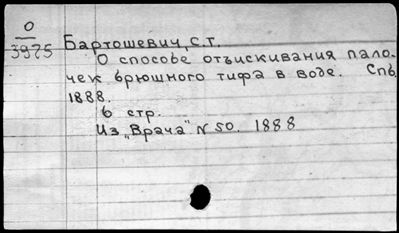 О
3975
Бартошевич, С.Т.
О способе отъискивания пало-
чек брюшного тифа в воде. Спб,
1888.
6 стр.
Из "Врача" N 50. 1888